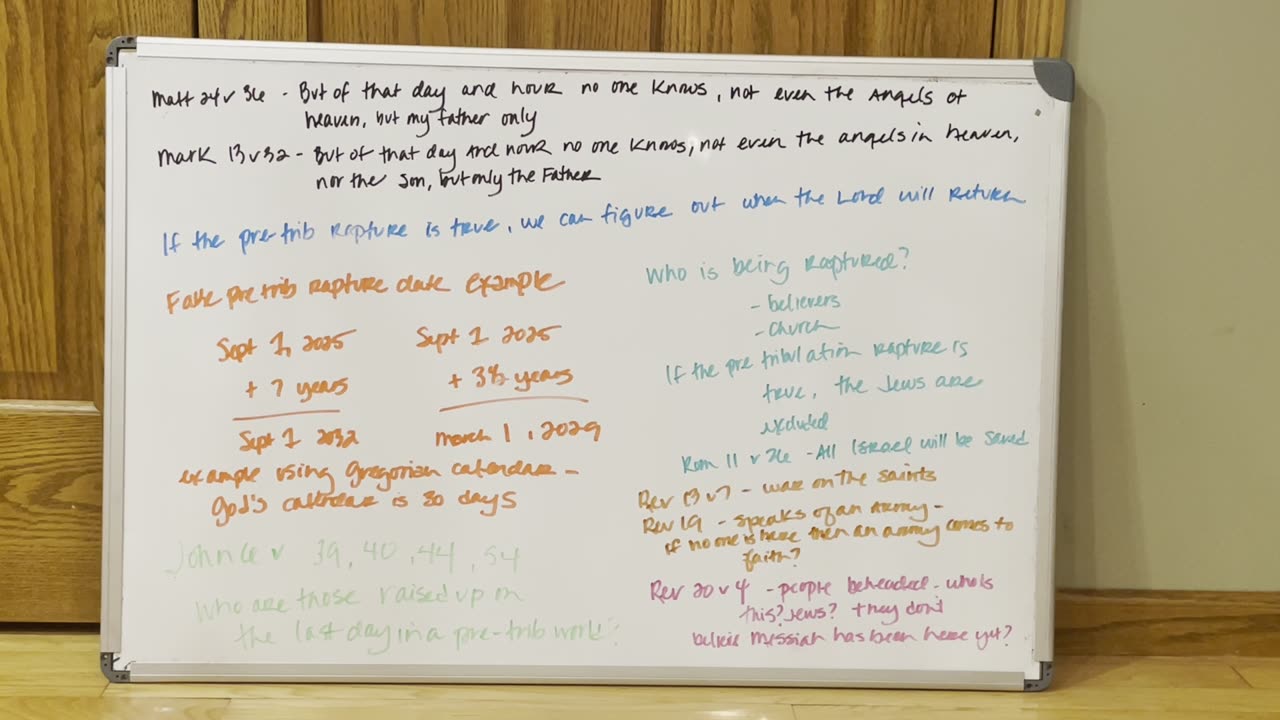 Matt 24 v 36 - But of that day and hour no one knows, not even the Angels of
heaven, but my father only
Mark 13 v 32 - But of that day and hour no one knows, not even the angels in heaven,
nor the Son, but only the Father
If the pre-trib rapture is true, we can figure out when the Lord will return
Fake pre trib rapture date example
Sept 1, 2025
+ 7 years
Sept 1 2032
Sept 1 2025
+ 3½ years
March 1, 2029
example using Gregorian calendar -
God's calendar is 30 days
John 6 v 39, 40, 44, 54
Who are those raised up on
the last day in a pre-trib world?
Who is being raptured?
- believers
- church
If the pre tribulation rapture is
true, the Jews are
excluded
Rom 11 v 26 - All Israel will be saved
Rev 13 v 7 - war on the saints
Rev 19 - speaks of an army -
if no one is here then an army comes to
faith?
Rev 20 v 4 - people beheaded - who is
this? Jews? they don't
believe Messiah has been here yet?